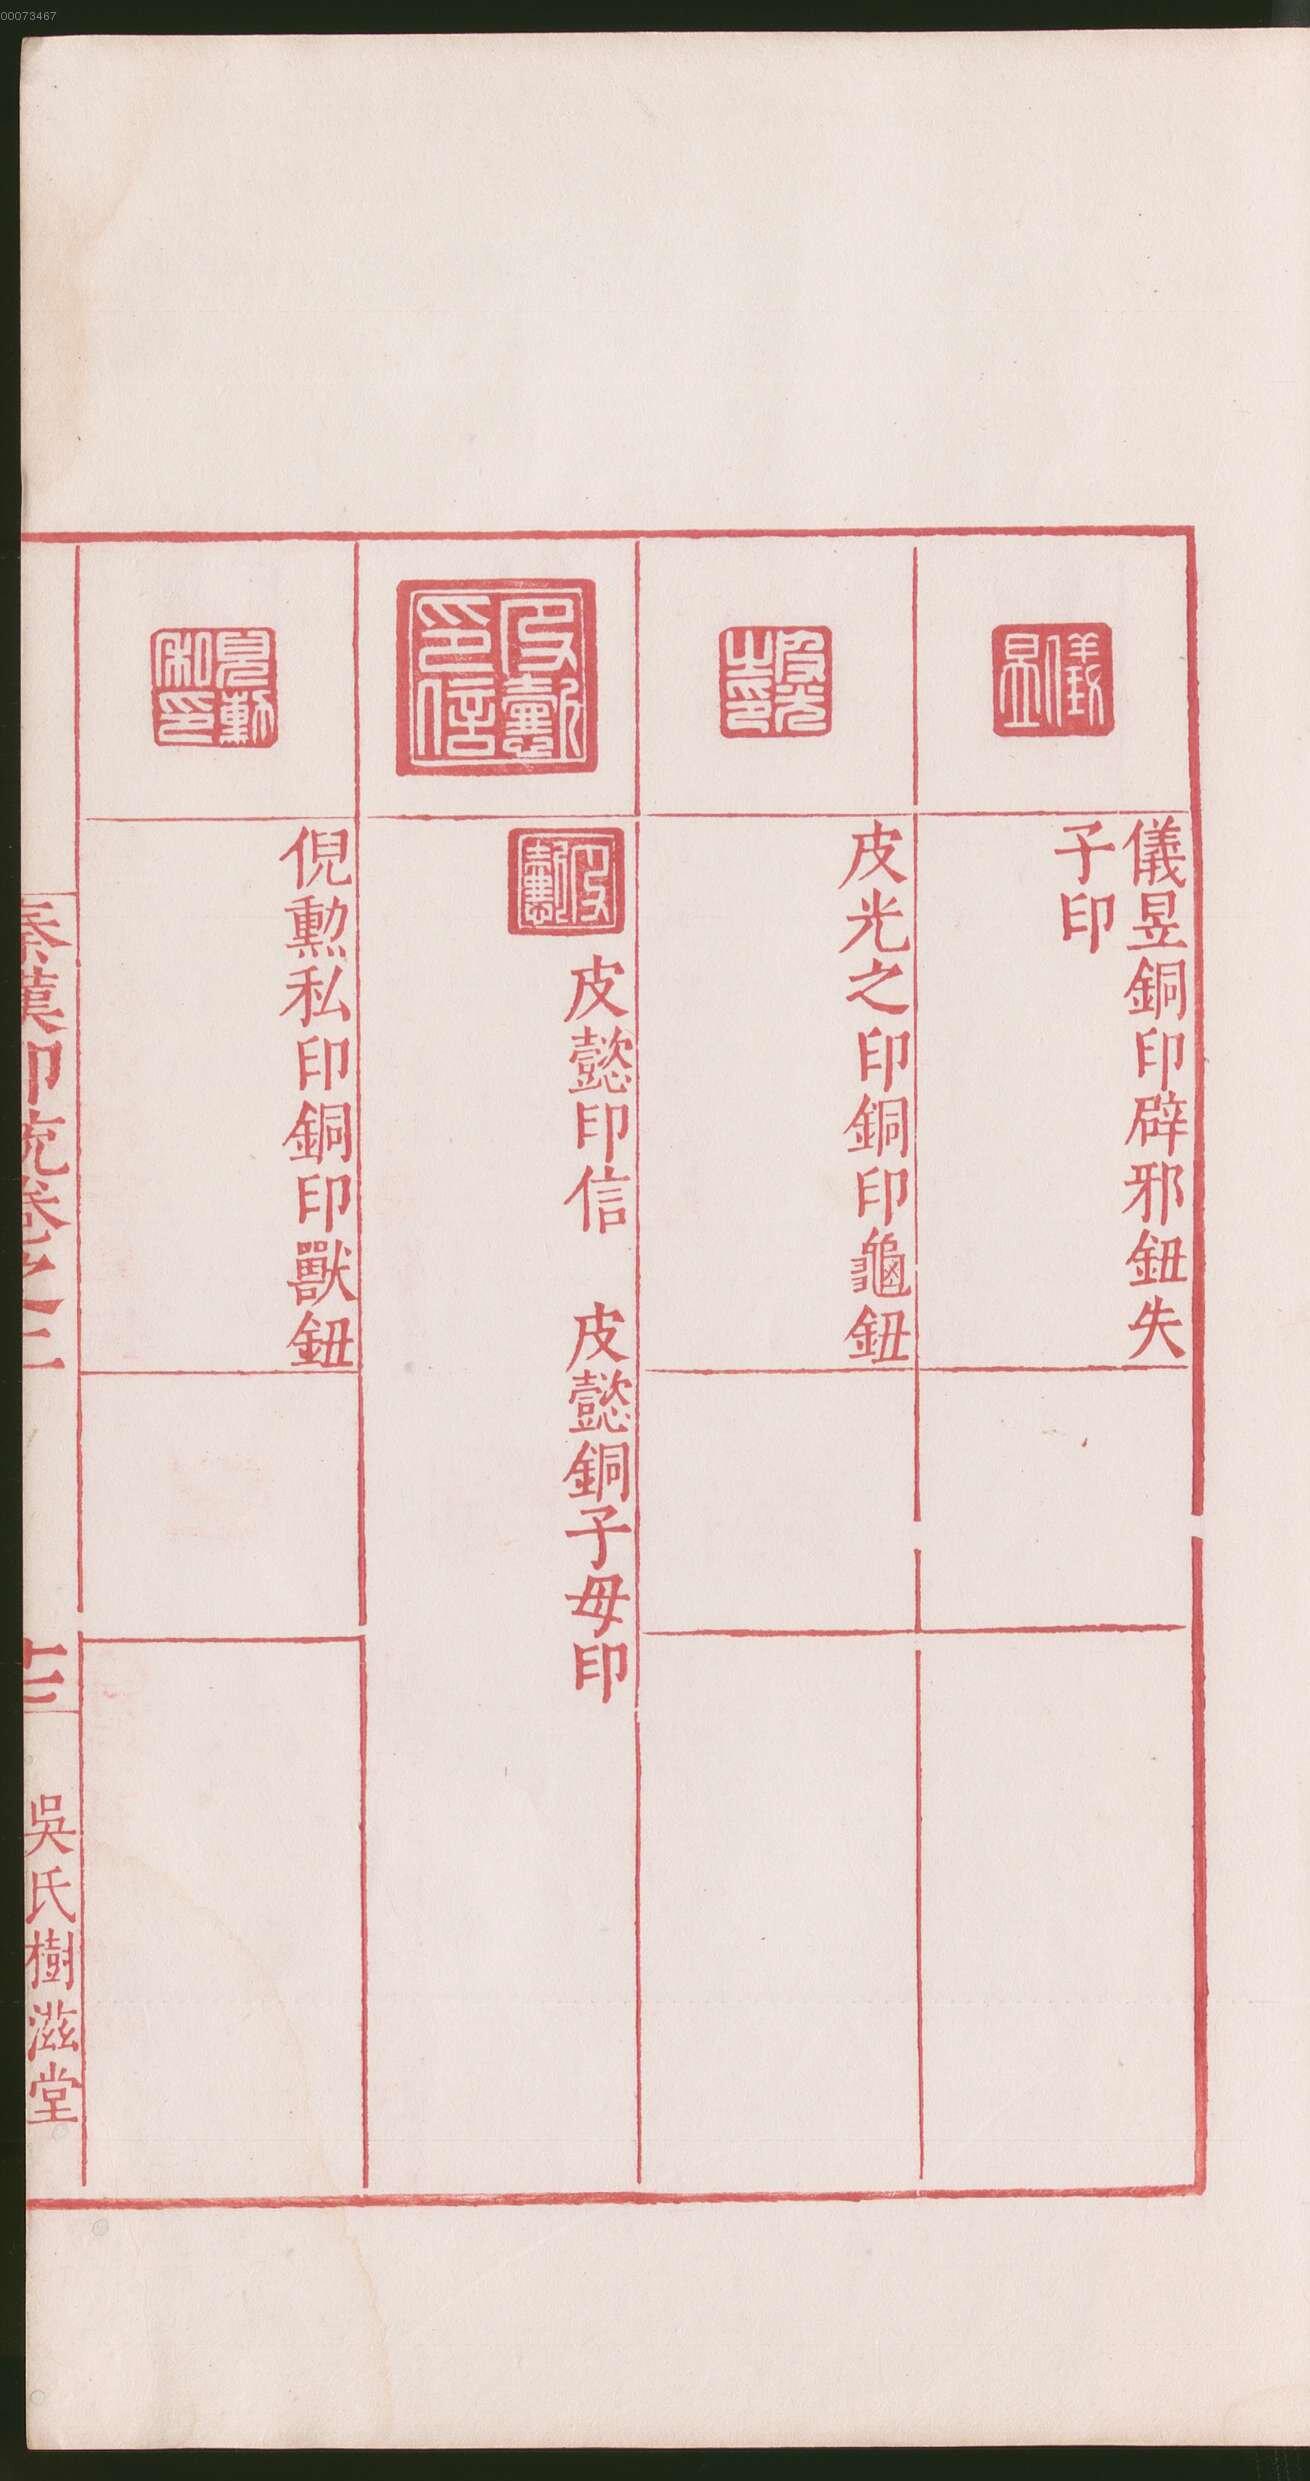 00073467
儀昱
儀昱銅印辟邪鈕失
子印
皮光之印
皮光之印銅印龜鈕
皮懿印信
皮懿
皮懿印信　皮懿銅子母印
倪勳私印
倪勳私印銅印獸鈕
秦漢印統卷之二
十三
吳氏樹滋堂